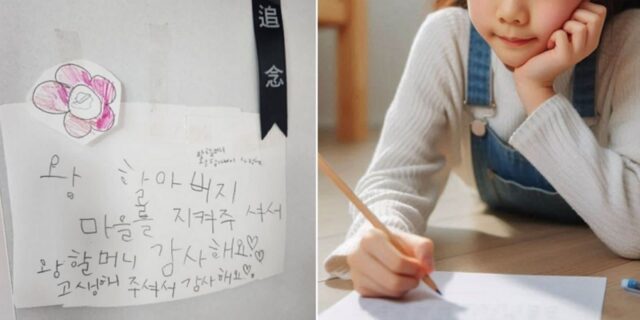 追念
왕 할아버지
마을를 지켜주셔서
왕할머니 감사해요♡♡
고생해 주셔서 감사해요♡